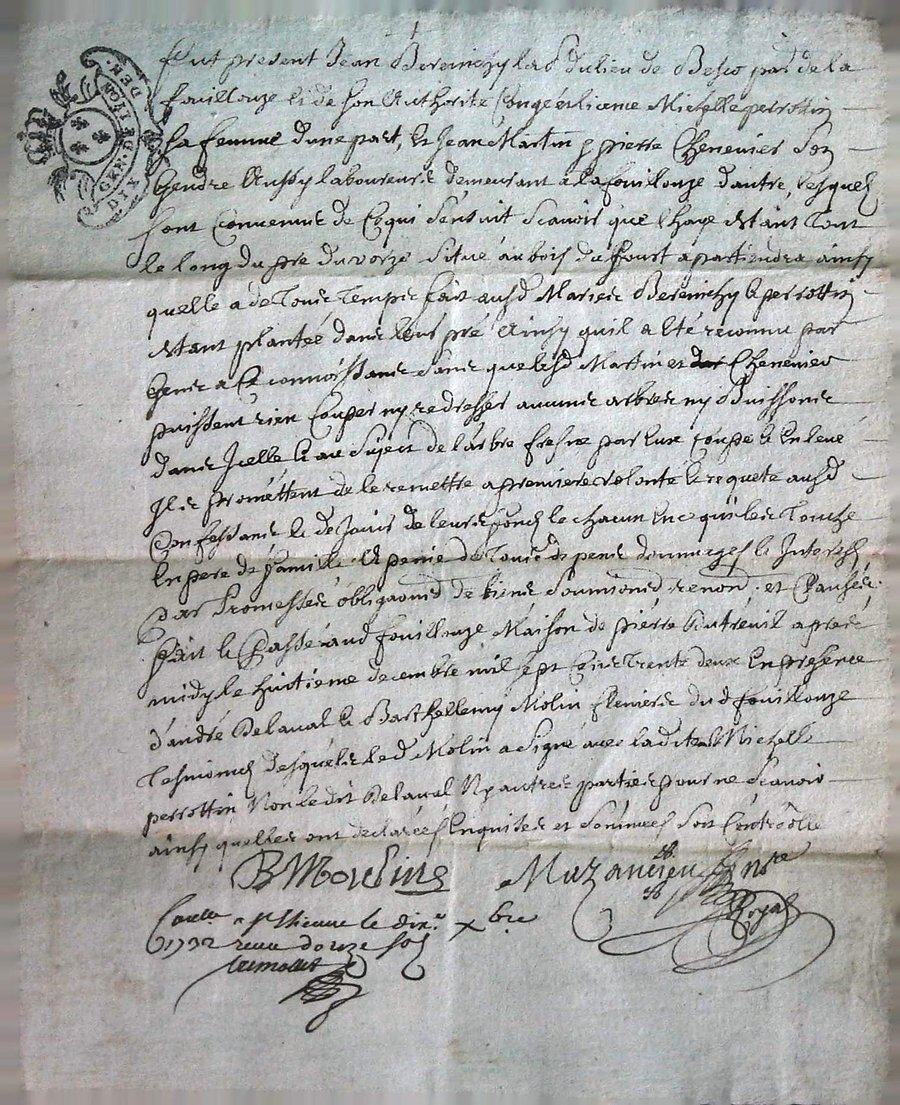 DEN.
GEN. D. LYON
DE. X
Fut présent Jean Bereinchy lad du lieu de Besco par de la
fouillouze et de son Authorité Congé et licence Michelle perrottin
sa femme d'une part, et Jean Martin p pierre Chenevier son
Gendre Aussy laboureurs demeurant a la fouillouze d'autre, lesquels
sont Convenus de Ce qui sensuit Scavoir que l'haye estant Tout
le long du pré du vorzé Situé au bois du fourt apartiendra ainsy
quelle a de Tous Temps fait ausd Mariés Bereinchy et perrottin
estant plantée dans leur pré Ainsy quil a été reconnu par
Gens a Ce connoissans sans que lesd Martin et Chenevier
puissent rien Couper ny redresser aucuns arbres ny Buissons
dans Icelle et au Suject de larbre fresne par Eux Coupé et Enlevé
Ils promettent de le remettre a premiere volonté et requete ausd
Confessans et de Jouir de leurs fonds et chacun en ce qui les Touche
En pere de famille A peine de Tous dépens dommages et Interests
par Promesses obligaons de biens Soumions renonons et Clauses
fait et Passé aud fouillouze Maison de pierre autreuil apres
midy le huitieme decembre mil sept Cens Trente deux En presence
d'andré Delaval et Barthellemy Molin dud fouillouze
Tesmoins desquels led Molin a Signé avec ladite Michelle
perrottin Non ledit Delaval Ny autres parties pour ne Scavoir
ainsy quelles ont declarées Enquises et Sommées Soit Controôllé
B Moulins Muzancieu nre
Royal
Conllé a St Etienne le dix xbre
1732 reçu douze sols